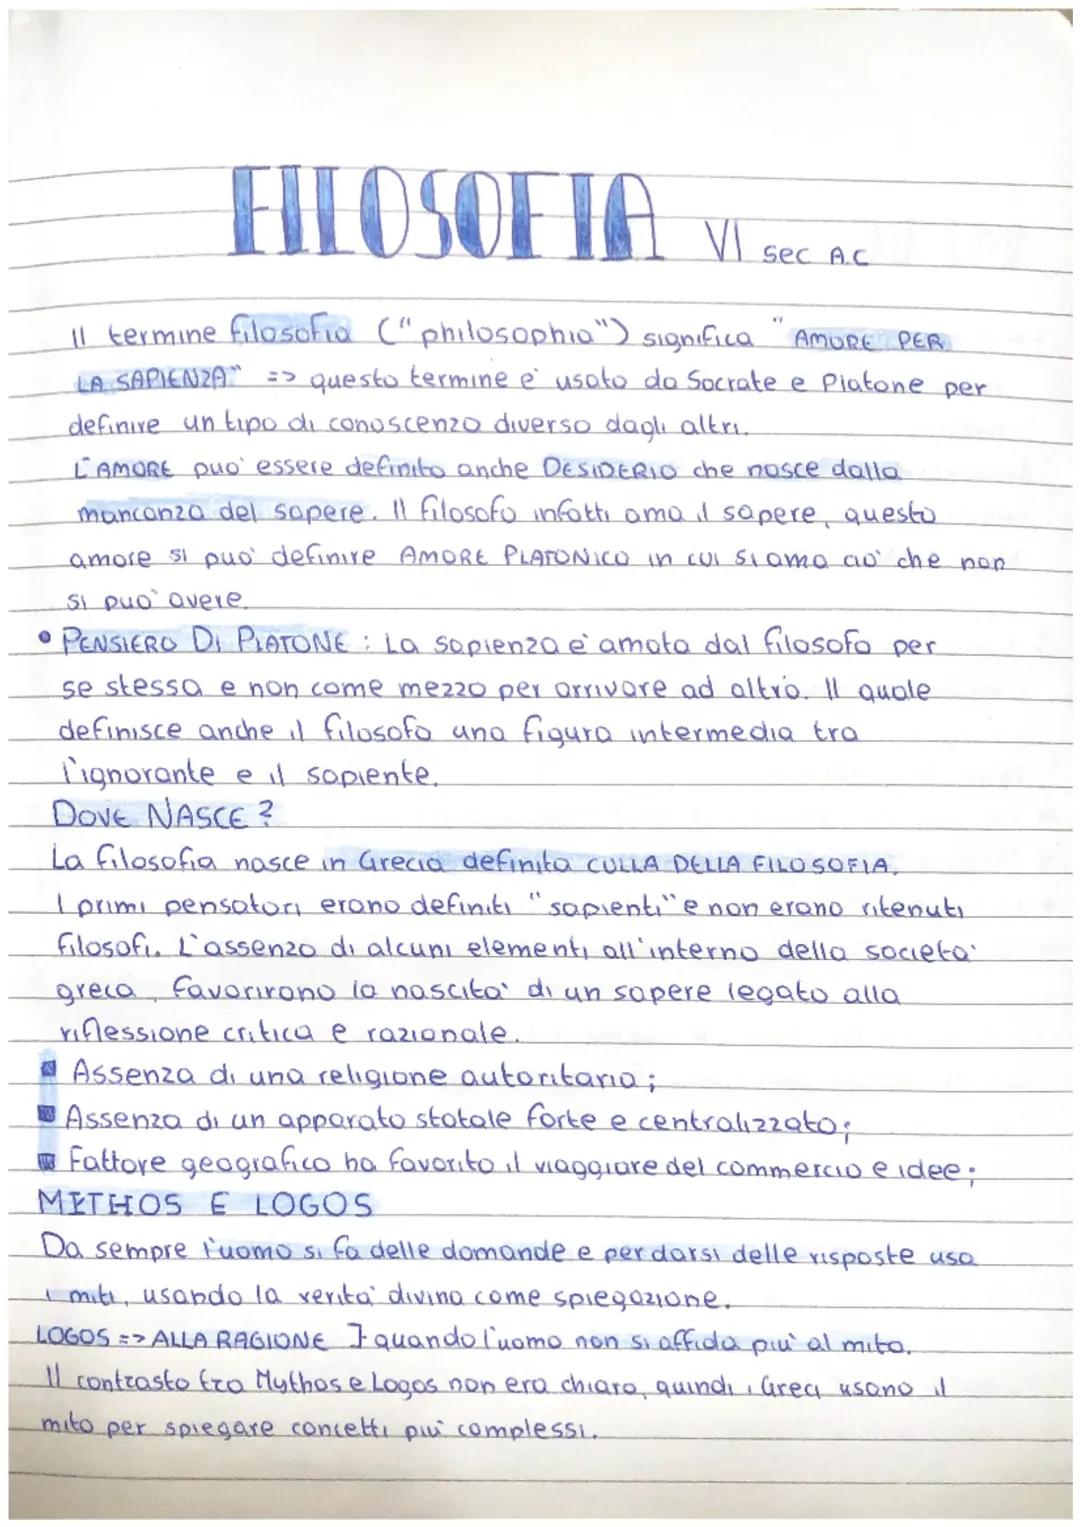 FILOSOFIA VI sec A.C
Il termine filosofia ("philosophia") significa "AMORE PER
LA SAPIENZA" => questo termine è usato da Socrate e Platone per
definire un tipo di conoscenza diverso dagli altri.
L'AMORE puo' essere definito anche DESIDERIO che nasce dalla
mancanza del sapere. Il filosofo infatti ama il sapere, questo
amore si puo' definire AMORE PLATONICO in cui si ama cio' che non
si puo' avere.
• PENSIERO DI PLATONE : La sapienza è amata dal filosofo per
se stessa e non come mezzo per arrivare ad altro. Il quale
definisce anche il filosofo una figura intermedia tra
l'ignorante e il sapiente.
DOVE NASCE ?
La filosofia nasce in Grecia definita CULLA DELLA FILOSOFIA.
I primi pensatori erano definiti "sapienti" e non erano ritenuti
filosofi. L'assenza di alcuni elementi all'interno della societa'
greca, favorirono la nascita' di un sapere legato alla
riflessione critica e razionale.
Assenza di una religione autoritaria;
Assenza di un apparato statale forte e centralizzato;
Fattore geografico ha favorito il viaggiare del commercio e idee;
METHOS E LOGOS
Da sempre l'uomo si fa delle domande e per darsi delle risposte usa
i miti, usando la verita' divina come spiegazione.
LOGOS => ALLA RAGIONE ] quando l'uomo non si affida piu' al mito.
Il contrasto tra Mythos e Logos non era chiaro, quindi i Greci usano il
mito per spiegare concetti piu' complessi.